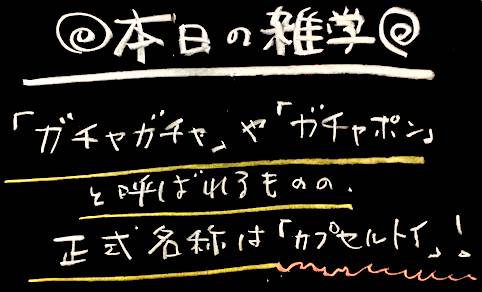 本日の雑学
「ガチャガチャ」や「ガチャポン」
と呼ばれるものの、
正式名称は「カプセルトイ」!